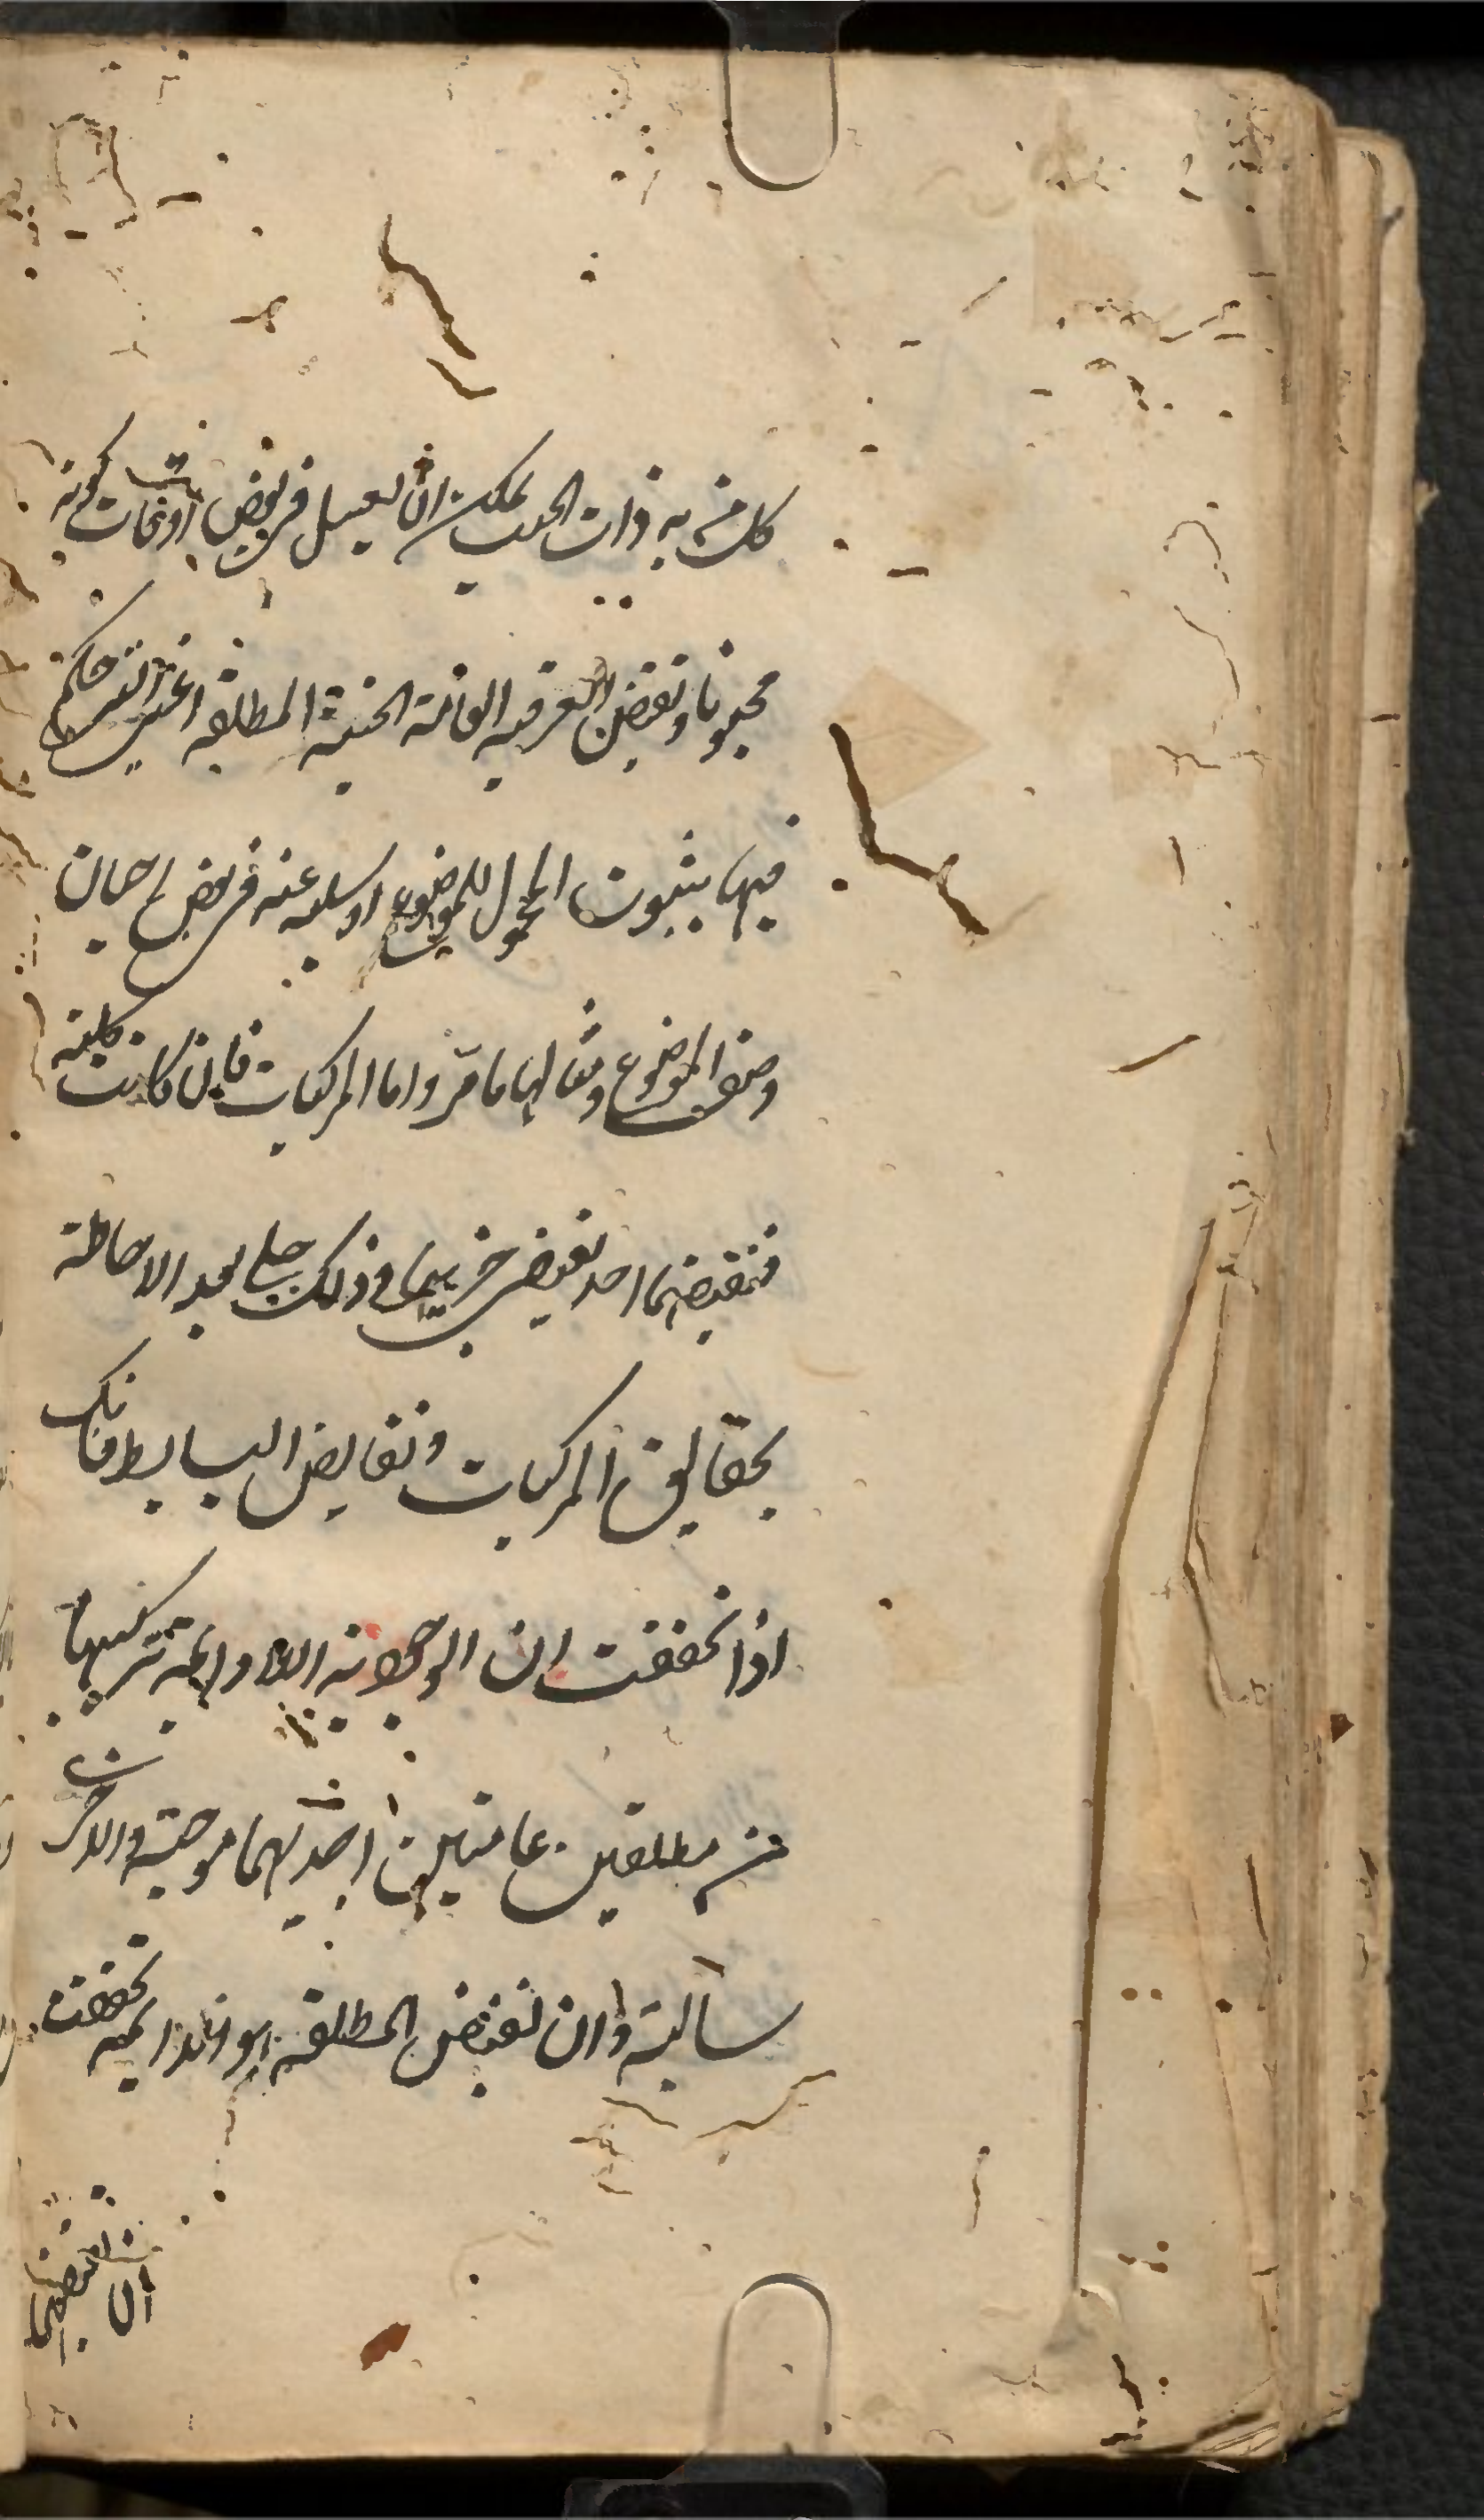 كل من به ذات الجنب يمكن ان يسعل في بعض اوقات كونه
مجنوبا ونقيض العرفية العامة الحينية المطلقة اعني التي حكم
فيها بثبوت المحمول للموضوع او سلبه عنه في بعض احيان
وصف الموضوع ومثالها ما مر واما المركبات فان كانت كلية
فنقيضها احد نقيضي جزئيها وذلك جلي بعد الاحاطة
بحقايق المركبات ونقايض البسايط فانك
اذا تحققت ان الوجودية اللادايمة تركيبها
من مطلقتين عامتين احديهما موجبة والاخرى
سالبة وان نقيض المطلقة هو الدايمة تحققت
ان نقيضها